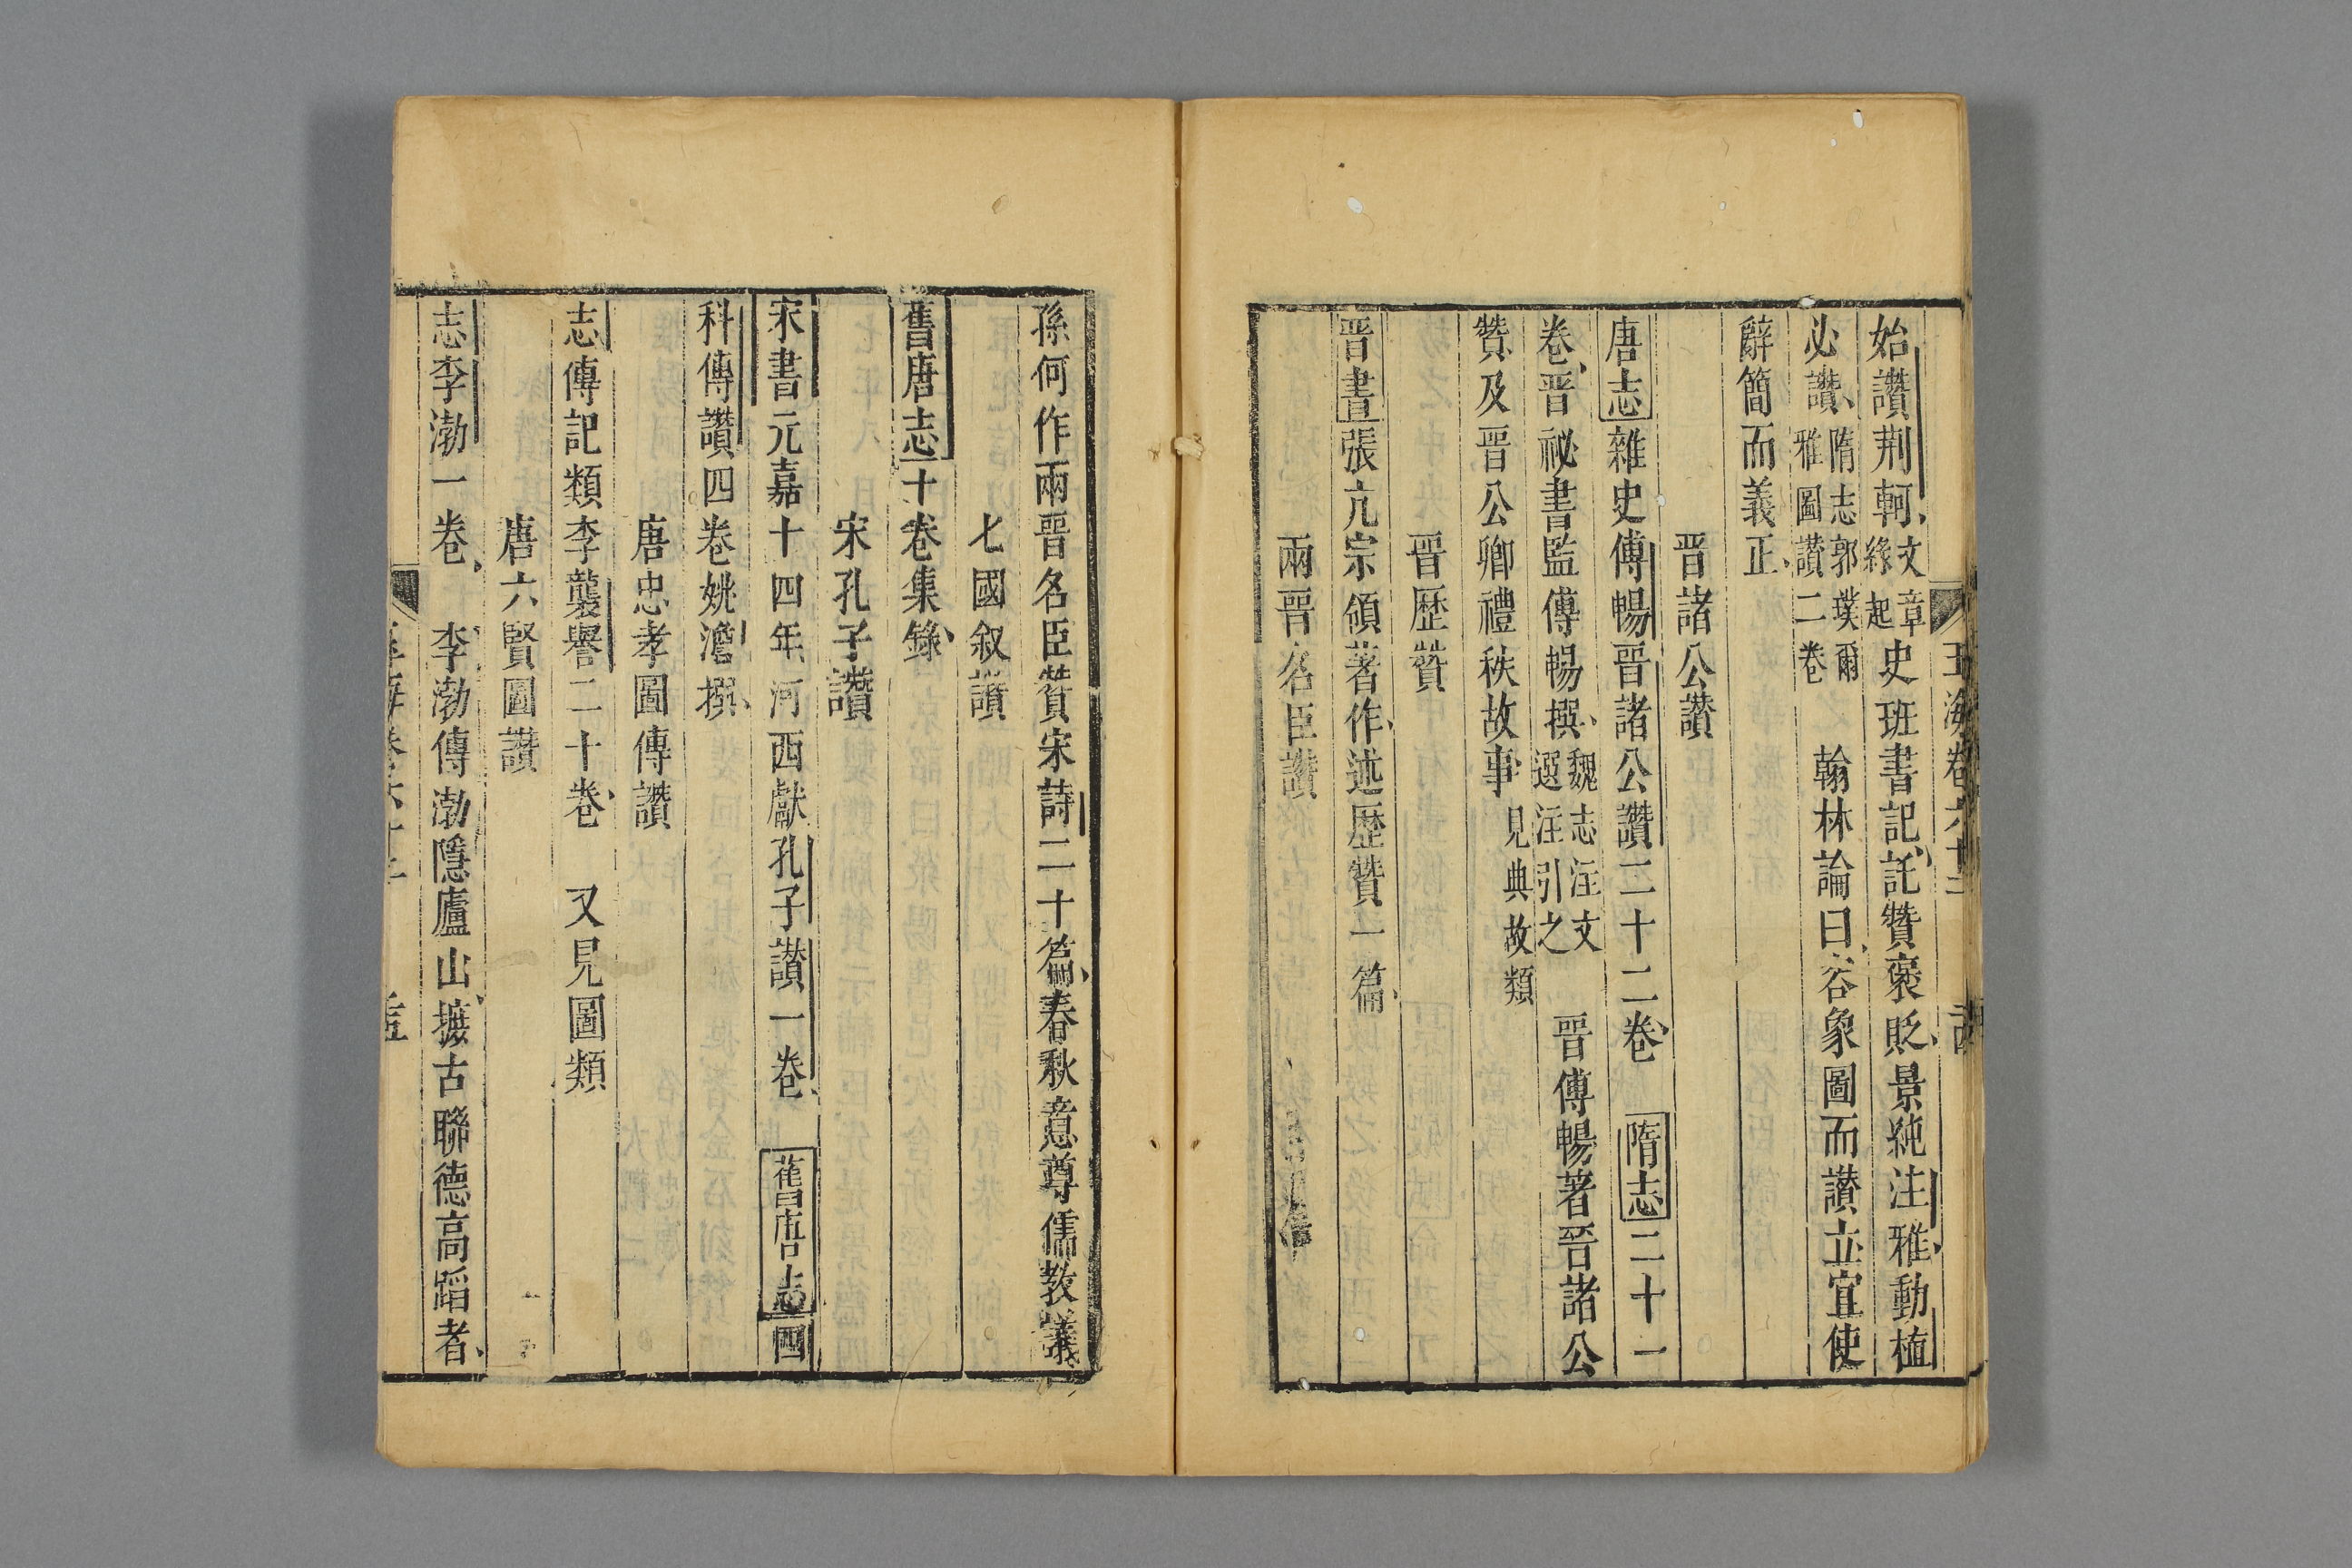 始讚荆軻文章緣起史班書記託贊褒貶景純注雅動植
必讚隋志郭璞爾雅圖讚二卷 翰林論曰容象圖而讚立宜使
辭簡而義正
晉諸公讚
唐志雜史傅暢晉諸公讚二十二卷 隋志二十一
卷晉祕書監傅暢撰魏志注文選注引之 晉傅暢著晉諸公
贊及晉公卿禮秩故事見典故類
晉歷贊
晉書張亢宗領著作述歷贊一篇
兩晉名臣讚
孫何作兩晉名臣贊宋詩二十篇春秋意尊儒教議
七國叙讃
舊唐志十卷集錄
宋孔子讚
宋書元嘉十四年河西獻孔子讃一卷 舊唐志四
科傳讚四卷姚澹撰
唐忠孝圖傳讚
志傳記類李襲譽二十卷 又見圖類
唐六賢圖讃
志李渤一卷 李渤傳渤隱廬山摭古聯德高蹈者